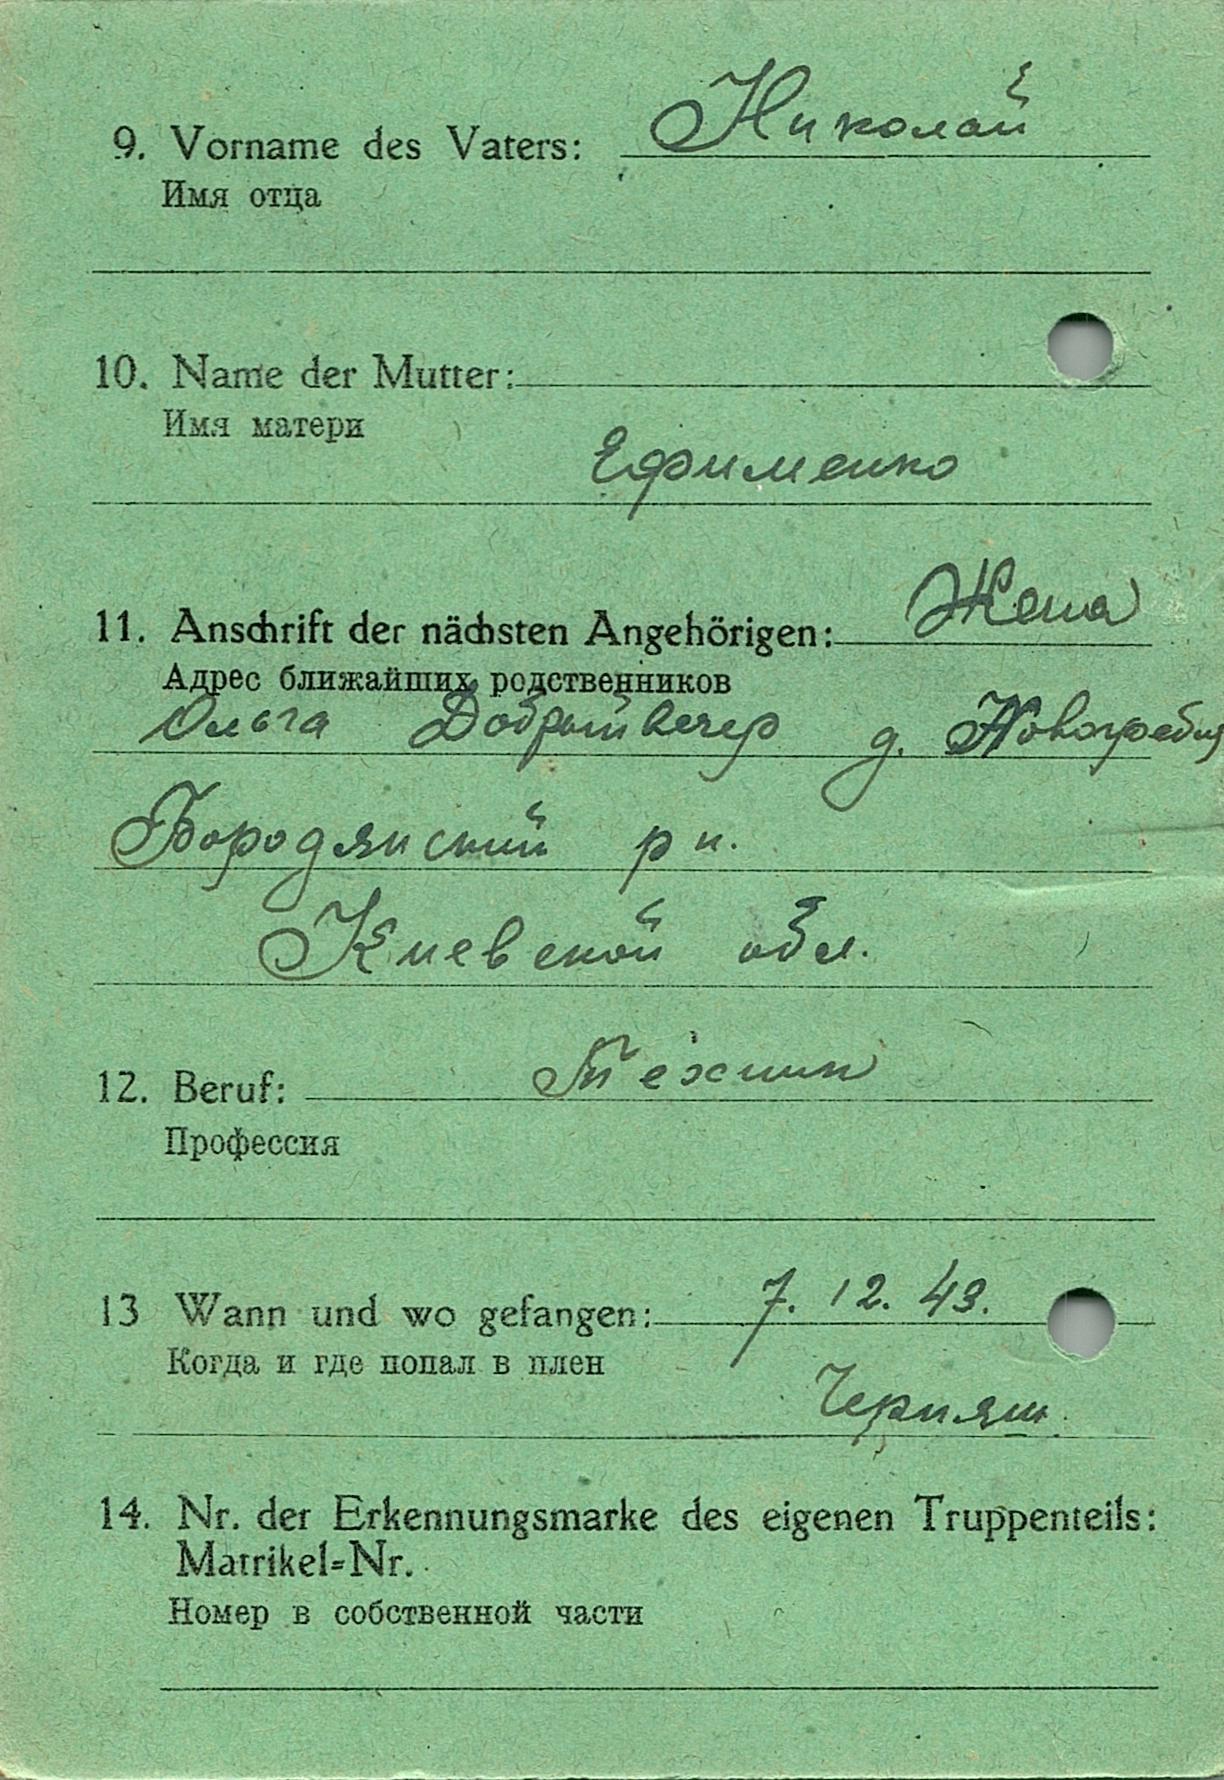 9. Vorname des Vaters: Николай
Имя отца
10. Name der Mutter:
Имя матери
Ефименко
11. Anschrift der nächsten Angehörigen: Жена
Адрес ближайших родственников
Ольга Добрыйвечер д. Новогребля
Бородянский рн.
Киевской обл.
12. Beruf: Техник
Профессия
13 Wann und wo gefangen: 7. 12. 43.
Когда и где попал в плен
Черняш
14. Nr. der Erkennungsmarke des eigenen Truppenteils:
Matrikel=Nr.
Номер в собственной части